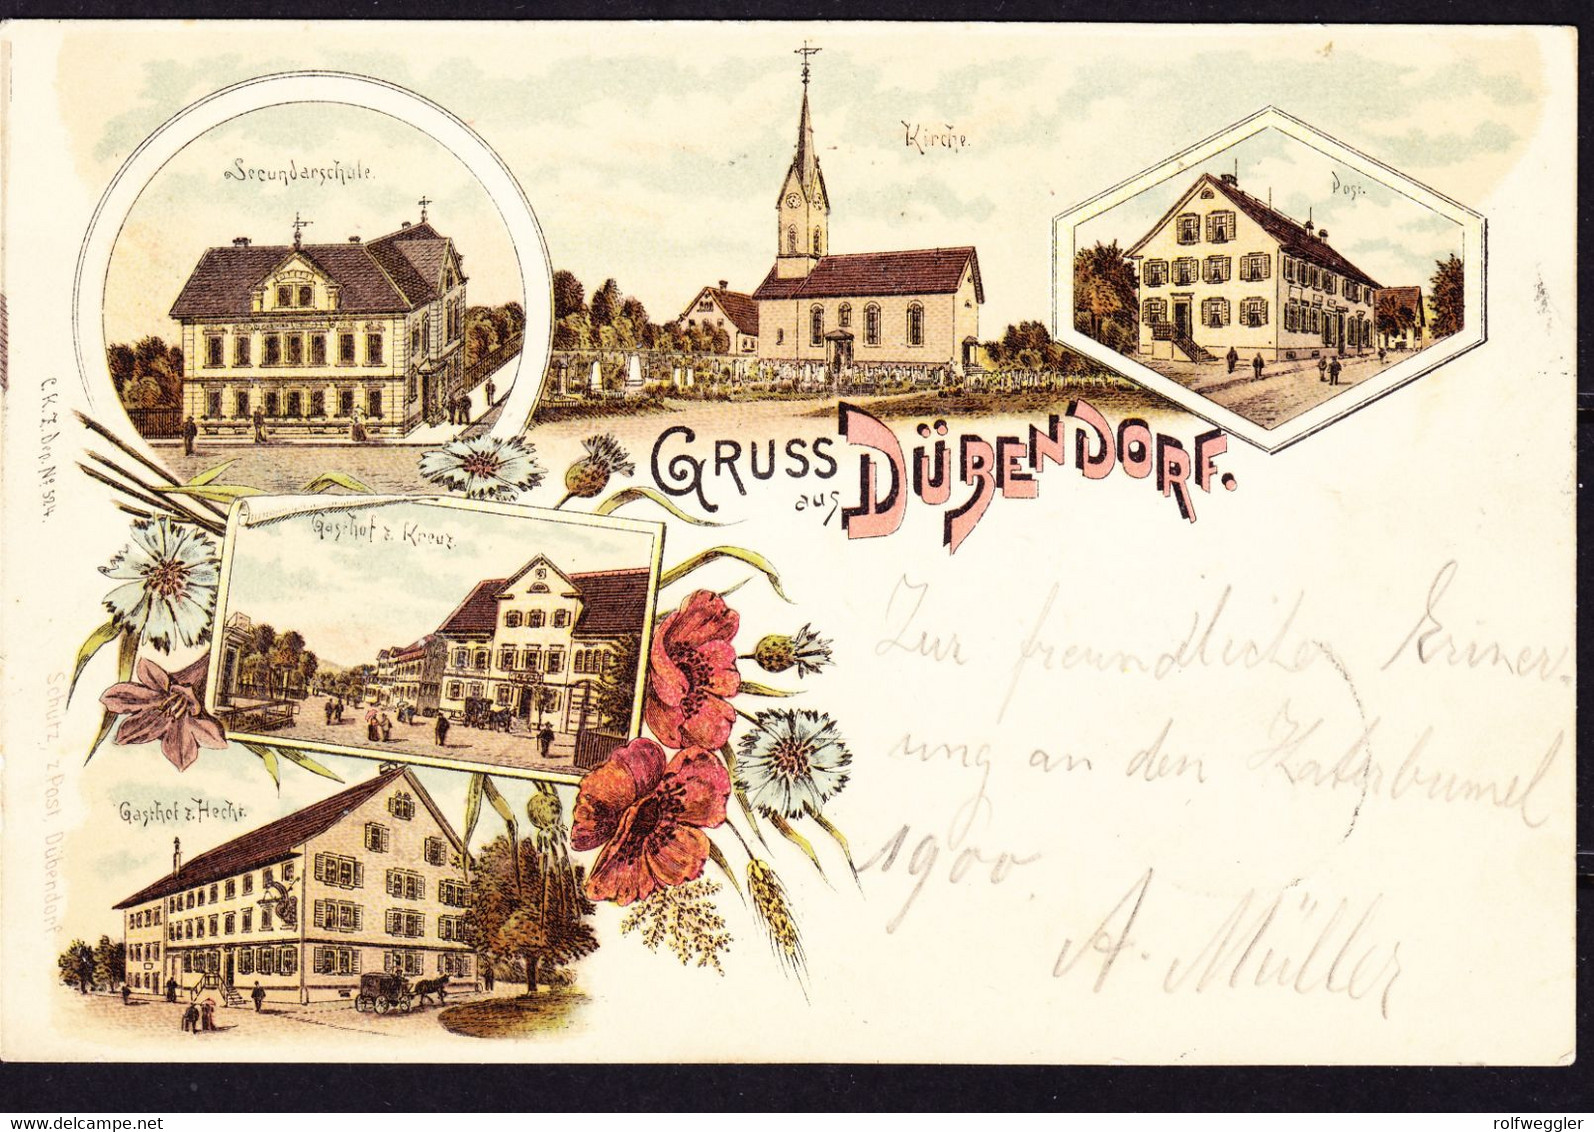 Secundarschule.
Kirche.
Post.
GRUSS
aus DÜBENDORF.
Gasthof z. Kreuz.
Gasthof z. Hecht.
C.K.Z. Dep. Nº 524.
Schutz, z Post, Dübendorf
Zur freundlichen Erinner-
ung an den Katerbummel
1900.
A. Müller
rolfweggler